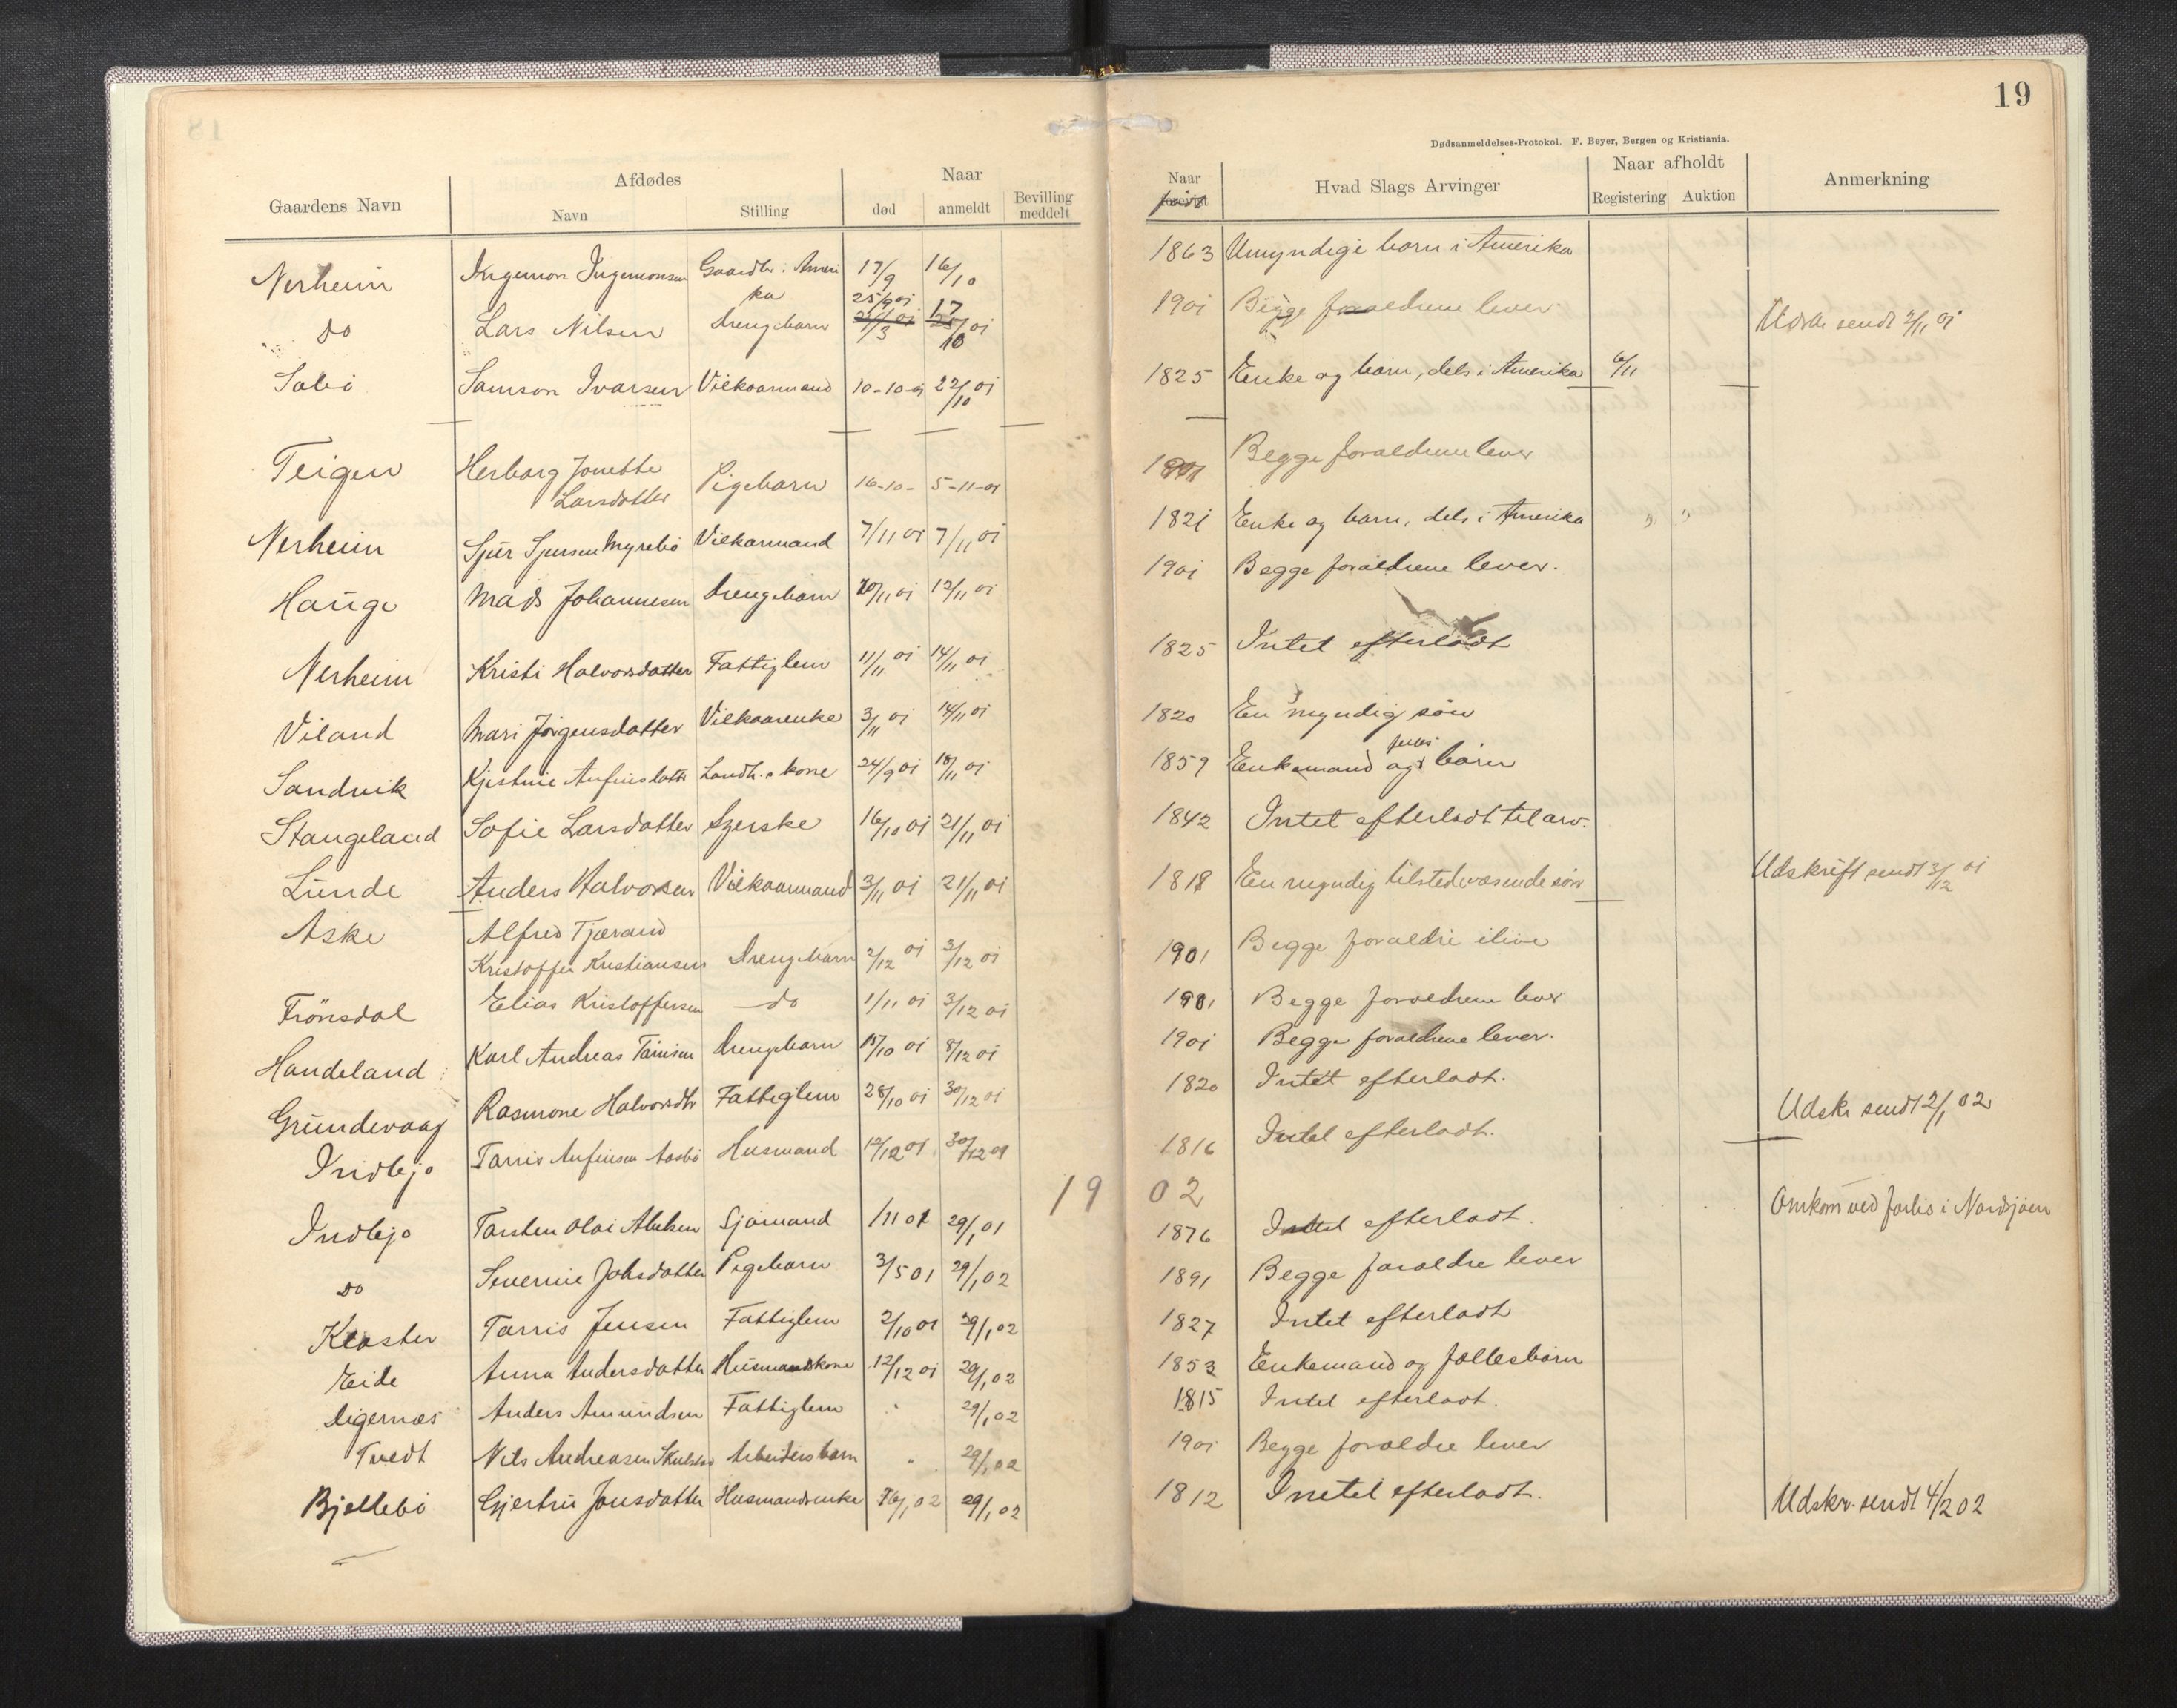 19
Dødsanmeldelses-Protokol. F. Beyer, Bergen og Kristiania.
Gaardens Navn | Afdødes Navn | Stilling | Naar død | anmeldt | Bevilling meddelt | Naar født | Hvad Slags Arvinger | Naar afholdt Registering | Auktion | Anmerkning
Nerheim | Ingemon Ingemonsen | Gaardbr. i Ameri ka | 17/9 | 16/10 | 1863 | Umyndige barn i Amerika
do | Lars Nilsen | Drengebarn | 25/9 01 | 17/10 01 | 1901 | Begge foraldrene lever | Udskr sendt 2/11 01
Sabö | Samson Ivarsen | Vilkaarmand | 10-10-01 | 22/10 01 | 1825 | Enke og barn, dels i Amerika | 6/11
Teigen | Herborg Jonette Larsdatter | Pigebarn | 16-10- | 5-11-01 | 1901 | Begge foraldrene lever
Nerheim | Sjur Sjursen Myrebö | Vilkarmand | 7/11 01 | 7/11 01 | 1821 | Enke og barn, dels i Amerika | " | "
Hauge | Mads Johannesen | Drengebarn | 10/11 01 | 12/11 01 | 1901 | Begge foraldrene lever.
Nerheim | Kristi Halvorsdatter | Fattiglem | 11/11 01 | 14/11 01 | 1825 | Intet efterladt
Viland | Mari Jörgensdatter | Vilkaarenke | 3/11 01 | 14/11 01 | 1820 | En myndig sön
Sandvik | Kjestine Anfinsdatter | Landh.s kone | 24/9 01 | 18/11 01 | 1859 | Enkemand og felles börn
Stangeland | Sofie Larsdatter | Syerske | 16/10 01 | 21/11 01 | 1842 | Intet efterladt til arv.
Lunde | Anders Halvorsen | Vilkaarmand | 3/11 01 | 21/11 01 | 1818 | En myndig tilstedeværende sön | Udskrift sendt 3/12 01
Aske | Alfred Tjærand Kristoffer Kristiansen | Drengebarn | 2/12 01 | 3/12 01 | 1901 | Begge foraldre ilive
Frönsdal | Elias Kristoffersen | do | 1/11 01 | 3/12 01 | 1901 | Begge foraldrene lever
Handeland | Karl Andreas Tönnesen | Drengebarn | 15/10 01 | 8/12 01 | 1901 | Begge foraldrene lever.
Grundevaag | Rasmone Halvorsdtr | Fattiglem | 28/10 01 | 30/12 01 | 1820 | Intet efterladt. | Udskr sendt 2/1 02
Indbjo | Tarris Anfinsen Aasbö | Husmand | 12/12 01 | 30/12 01 | 1816 | Intet efterladt.
1902
Indbjo | Torsten Olai | Sjömand | /11 01 | 29/1 01 | 1876 | Intet efterladt. | Omkom ved forlis i Nordsjöen
do | Severine Johsdatter | Pigebarn | 3/5 01 | 29/1 02 | 1891 | Begge foraldre lever
Kloster | Tarris Jensen | Fattiglem | 2/10 01 | 29/1 02 | 1827 | Intet efterladt
Eide | Anna Andersdatter | Husmandskone | 12/12 01 | 29/1 02 | 1853 | Enkemand og fællesbörn
Digernæs | Anders Amundsen | Fattiglem | " | 29/1 02 | 1815 | Intet efterladt.
Tvedt | Nils Andreasen | Arbeiders barn | " | 29/1 02 | 1901 | Begge foraldre lever
Bjellebö | Gjertrui Jonsdatter | Husmandsenke | 16/1 02 | 29/1 02 | 1812 | Inetet efterladt. | Udskr. sendt 4/2 02